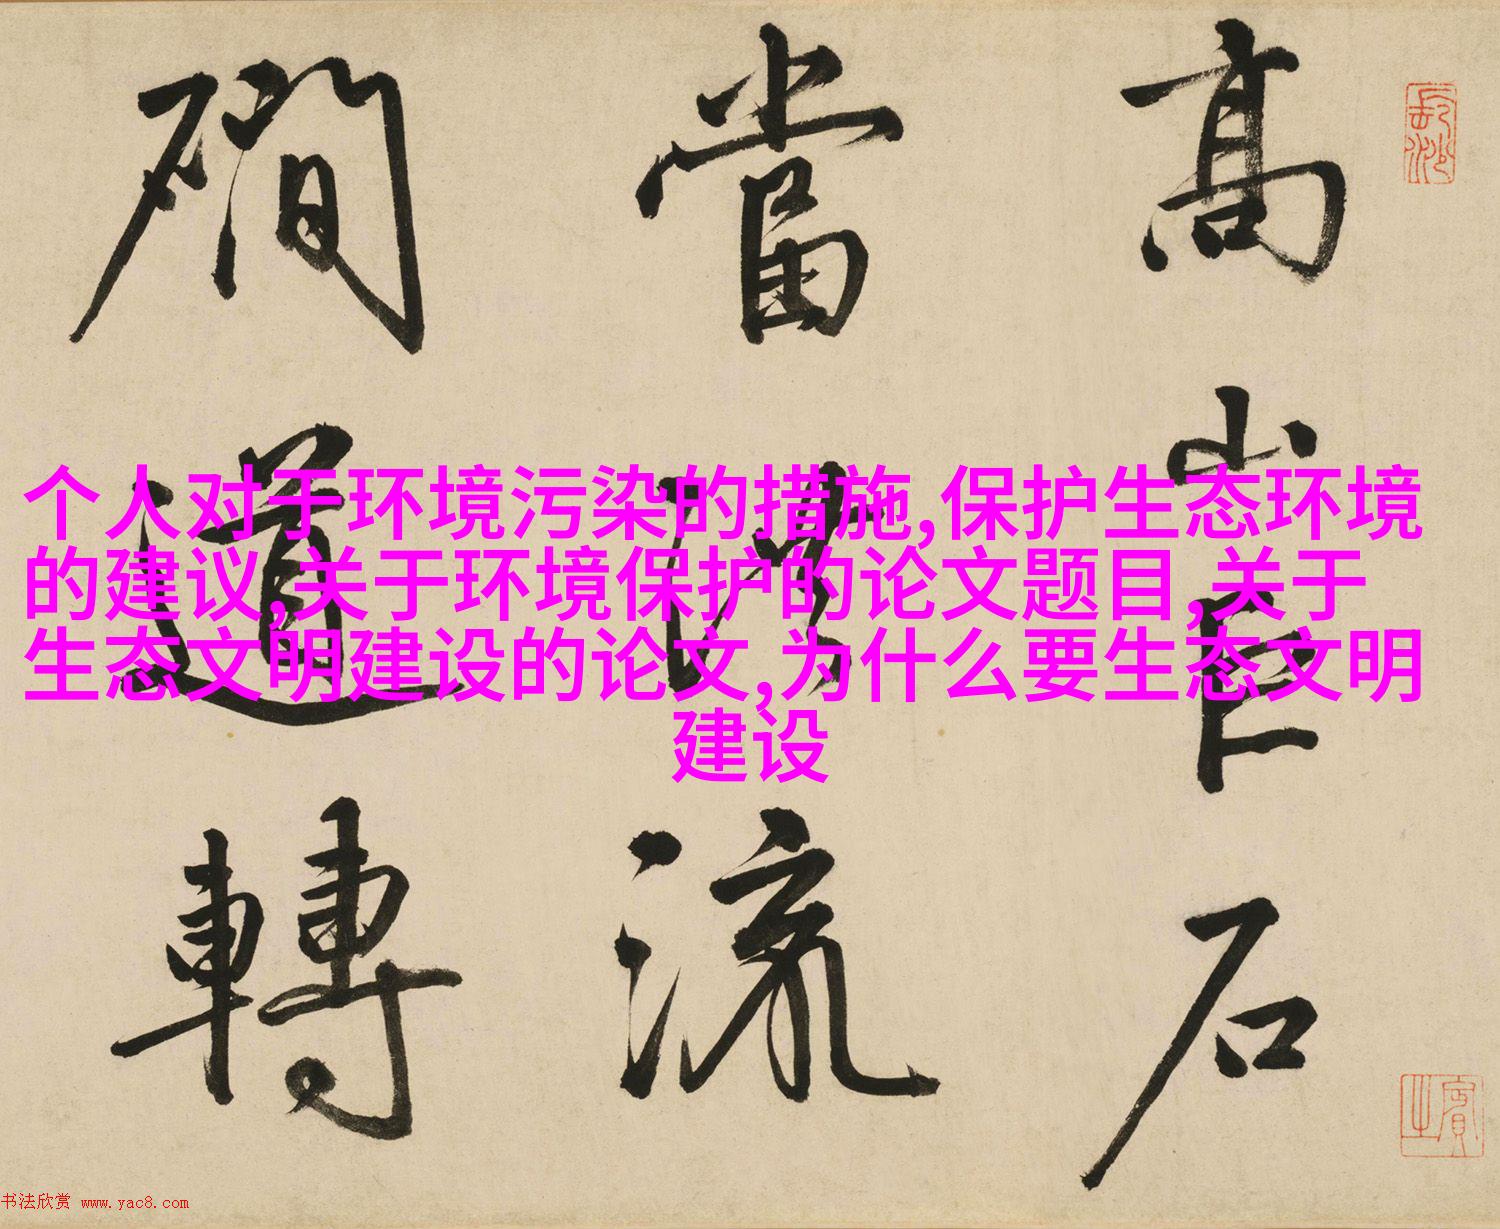 高山巨石
當洪流
磵道轉
个人对于环境污染的措施,保护生态环境
的建议,关于环境保护的论文题目,关于
生态文明建设的论文,为什么要生态文明
建设
书法欣赏 www.yac8.com